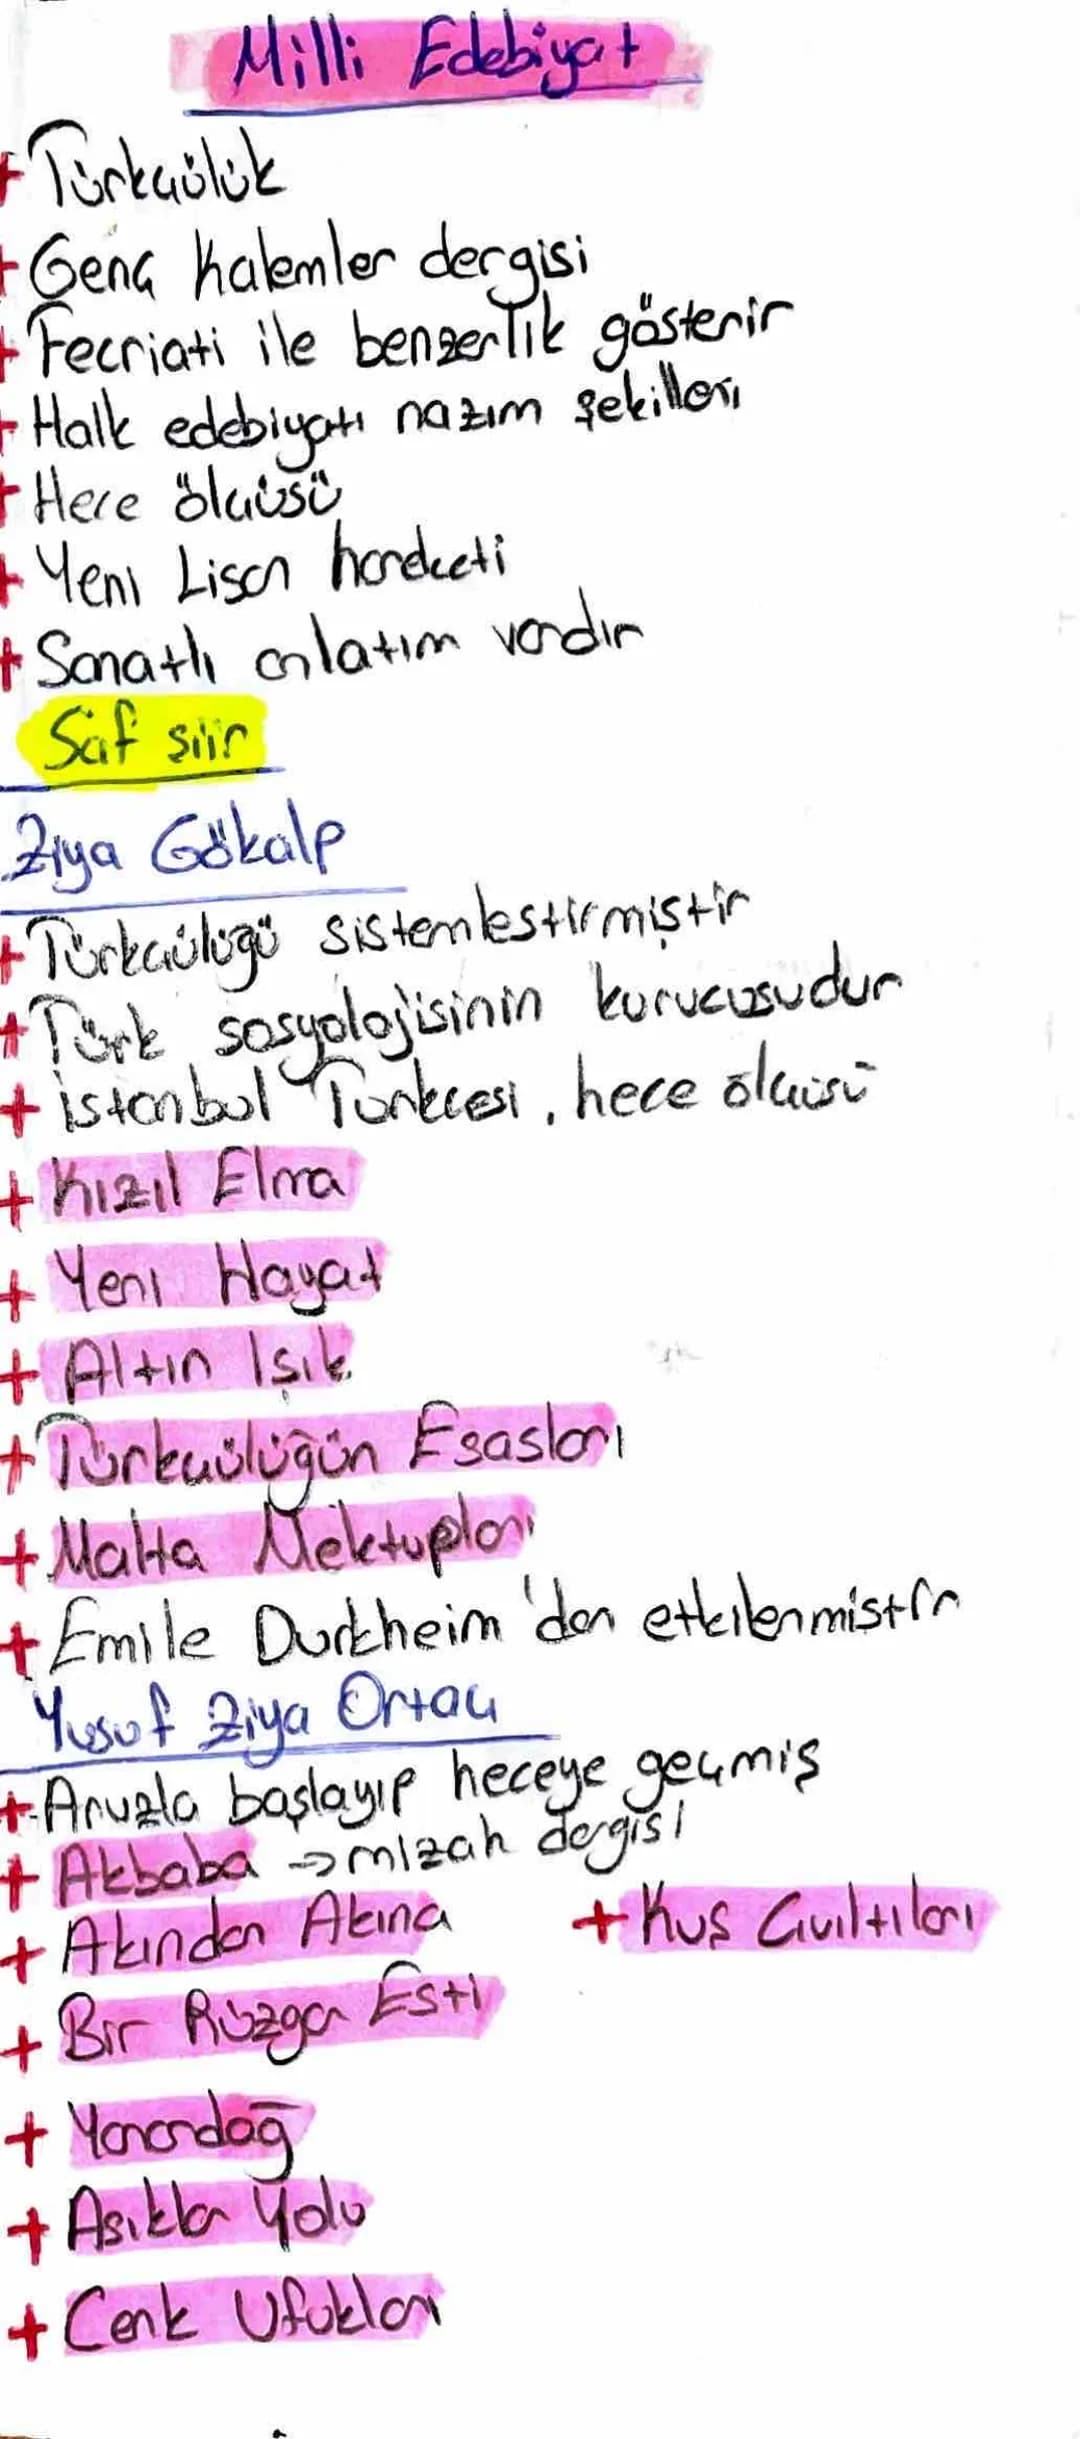 Milli Edebiyat
+ Türkçülük
+ Genç Kalemler dergisi
+ Fecriati ile benzerlik gösterir
+ Halk edebiyatı nazım şekilleri
+ Hece ölçüsü
+ Yeni Lisan hareketi
+ Sanatlı anlatım vardır
Saf şiir
Ziya Gökalp
+ Türkçülüğü sistemleştirmiştir
+ Türk sosyolojisinin kurucusudur
+ istanbul Türkçesi, hece ölçüsü
+ Kızıl Elma
+ Yeni Hayat
+ Altın Işık
+ Türkçülüğün Esasları
+ Malta Mektupları
+ Emile Durkheim'den etkilenmiştir
Yusuf Ziya Ortaç
+ Aruzla başlayıp heceye geçmiş
+ Akbaba → mizah dergisi
+ Akından Akına + Kuş Cıvıltıları
+ Bir Rüzgar Esti
+ Yanardağ
+ Aşıklar Yolu
+ Cenk Ufukları